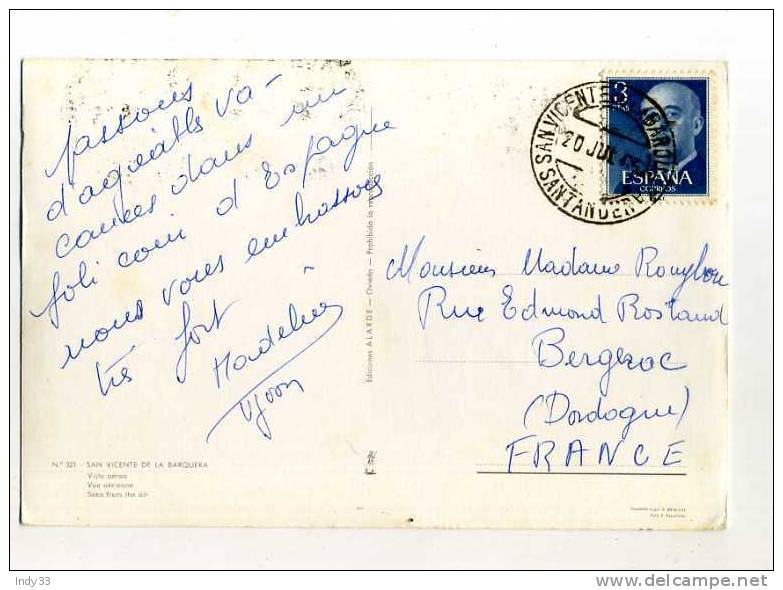 passons
d'agréable va-
cances dans un
joli coin d'Espagne
nous vous embrassons
très fort
Madeleine
N.º 321 - SAN VICENTE DE LA BARQUERA
Vista aérea
Vue aérienne
Seen from the air
Ediciones ALARDE — Oviedo — Prohibida la reproducción
3
ESPAÑA
CORREOS
SAN VICENTE BARQUERA
20 JUL
SANTANDER
Monsieur Madame
Rue Edmond Rostand
Bergerac
(Dordogne)
FRANCE
Indy33
delcampe.net